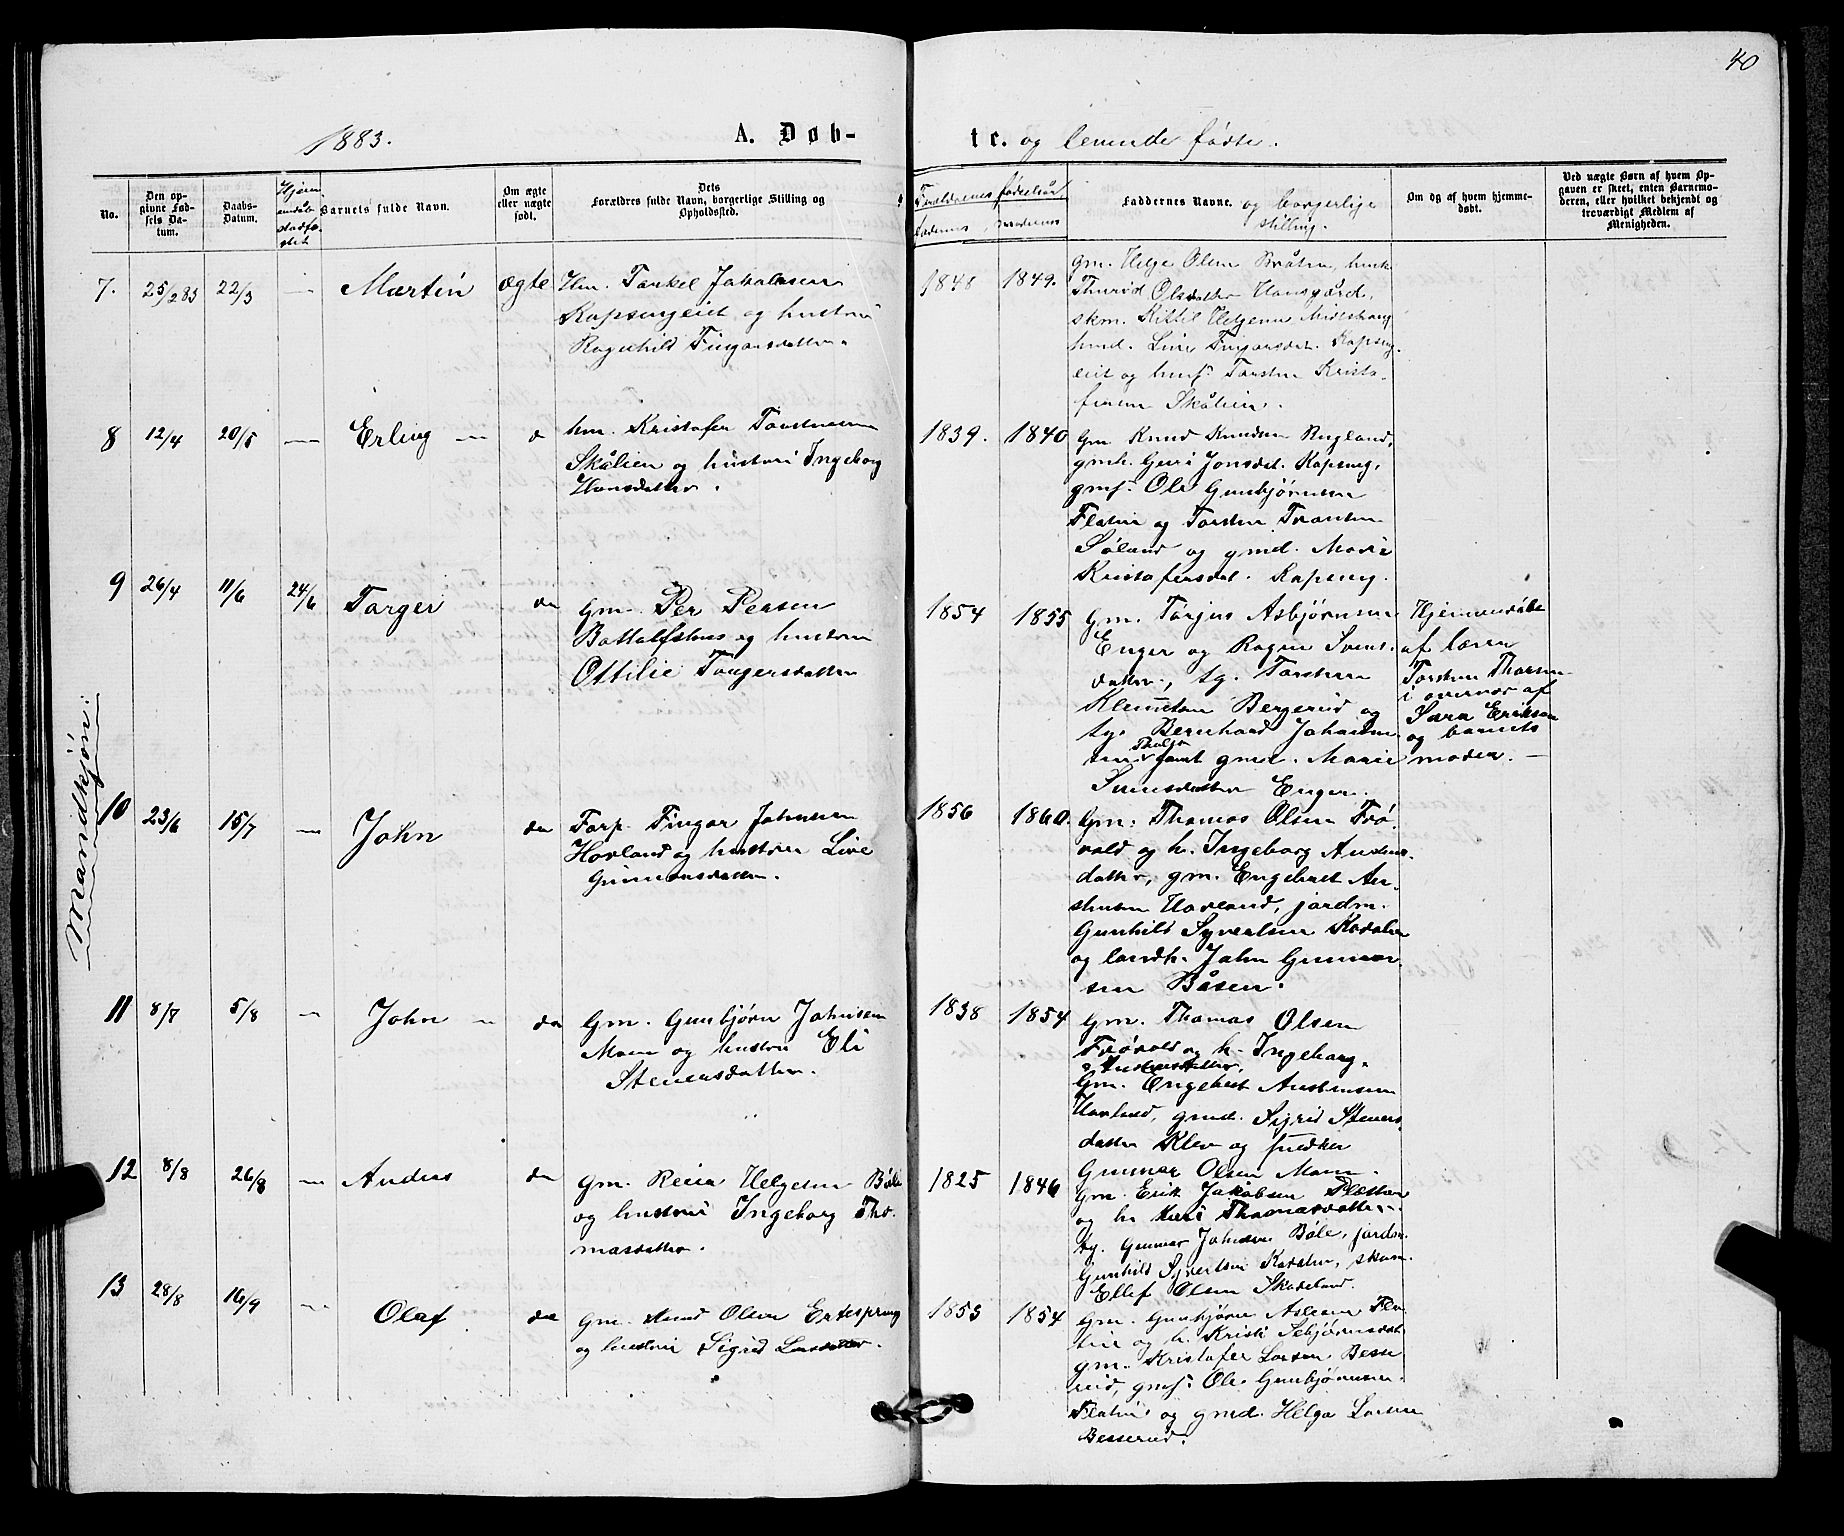 40
1883.
A. Døb-
te. og levende fødte.
No.
Den op-
givne Fød-
sels Da-
tum.
Daabs-
Datum.
Barnets fulde Navn.
Om ægte
eller nægte
født.
Dets
Forældres fulde Navn, borgerlige Stilling og
Opholdssted.
Forældrenes fødselsår,
fadernes, modrenes
Faddernes Navne. og borgerlige
stilling.
Om og af hvem hjemme-
døbt.
Ved nægte Børn af hvem Op-
gaven er skeet, enten Barnemo-
deren, eller hvilket bekjendt og
troværdigt Medlem af
Menigheden.
Mandkjøn:
7. 25/2 83 22/3 — Martin ægte
Hm. Torkel Jakobsen
Kopsengeiet og hustru
Ragnhild Fingarsdatter.
1848 1849.
gm. Helge Olsen Bråten, husk.
Thurid Olsdatter Hansgård,
skm. Kittil Helgesen Midtstrand
hmd. Live Fingarsdat. Kopseng-
eiet og hmf. Torsten Kristo-
fersen Skålien.
8 12/4 20/5 — Erling — d
hm. Kristofer Torstensen
Skålien og hustru Ingeborg
Hansdatter.
1839. 1840
Gm Knud Knudsen Rugland,
gmh. Guri Jonsdat. Kopseng,
gmf. Ole Gunbjørnsen
Flatin og Torsten Trondsen
Søland og gmd. Marie
Kristofersdat. Kopseng.
9 26/4 11/6 24/6 Torger do
Gm. Per Persen
Bottolfshus og hustru
Ottilie Torgersdatter
1854 1855
Gm. Torjus Asbjørnsen
Enger og Ragne Svens-
datter, tg. Torsten
Klemetsen Bergerud og
tg. Bernhard Johann-
sen Tholfr samt gmd. Marie
Svensdatter Enger.
Hjemmedøbt
af lærer
Torsten Thorsen
i overvær af
Sara Eriksen
og barnets
moder. —
10 23/6 15/7 — John do
Forp. Fingar Johnsen
Hovland og hustru Live
Gunnarsdatter.
1856 1860.
Gm. Thomas Olsen Frø-
vold og h. Ingeborg Andens-
datter, gm. Engebret Au-
stensen Hovland, jordm.
Gunhild Syvertsen Kodalen
og landh. John Gunnar-
sen Båsen.
11 8/7 5/8 — John — do
Gm. Gunbjørn Johnsen
Moen og hustru Eli
Stenersdatter.
1838 1854
Gm. Thomas Olsen
Frøvold og h. Ingeborg
Andensdatter,
Gm. Engebret Austensen
Hovland, gmd. Sigrid Steners-
datter Klev og snedker
Gunnar Olsen Moen.
12 8/8 26/8 — Anders do
gm. Reiar Helgesen Bøle
og hustru Ingeborg Tho-
masdatter.
1825 1846
Gm. Erik Jakobsen Plesten
og h. Kari Thomasdatter,
tg. Gunnar Johnsen Bøle, jordm.
Gunhild Syvertsen Kodalen, skom.
Ellef Olsen Skadeland.
13 28/8 16/9 — Olaf do
Gm. Amund Olsen Ertespring
og hustru Sigrid Larsdatter.
1853 1854
Gm. Gunbjørn Aslesen Fla-
tin og h. Kristi Sebjørnsdat.
gm. Kristofer Larsen Besse-
rud, gmf. Ole Gunbjørnsen
Flatin og gmd. Helga Larsen
Besserud.